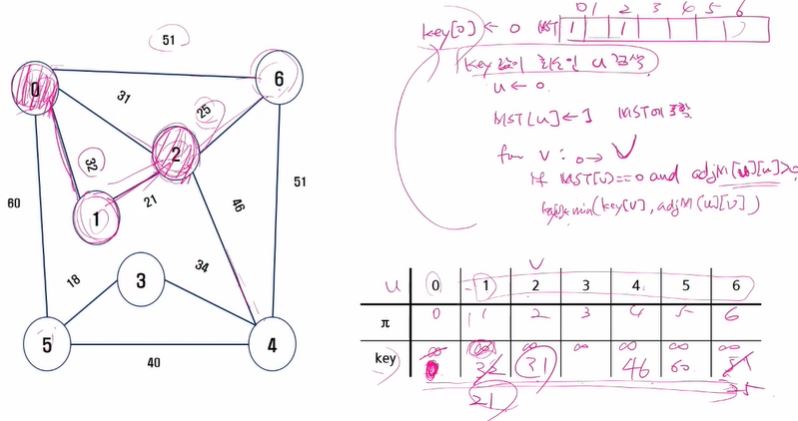 51
0
6
31
25
2
32
21
1
60
51
46
18
3
34
5
4
40
key[0] ← 0 MST 0 1 2 3 4 5 6
1 1
key 값이 최소인 u 검색
u ← 0
MST[u] ← 1 MST에 포함
for v : 0 → V
if MST[v]==0 and adjM[u][v]>0
min(key[v], adjM[u][v])
u 0 1 2 3 4 5 6
π 0 1 2 3 4 5 6
∞ ∞ ∞ ∞ ∞ ∞ ∞
key 0 32 31 46 60 51
21 25